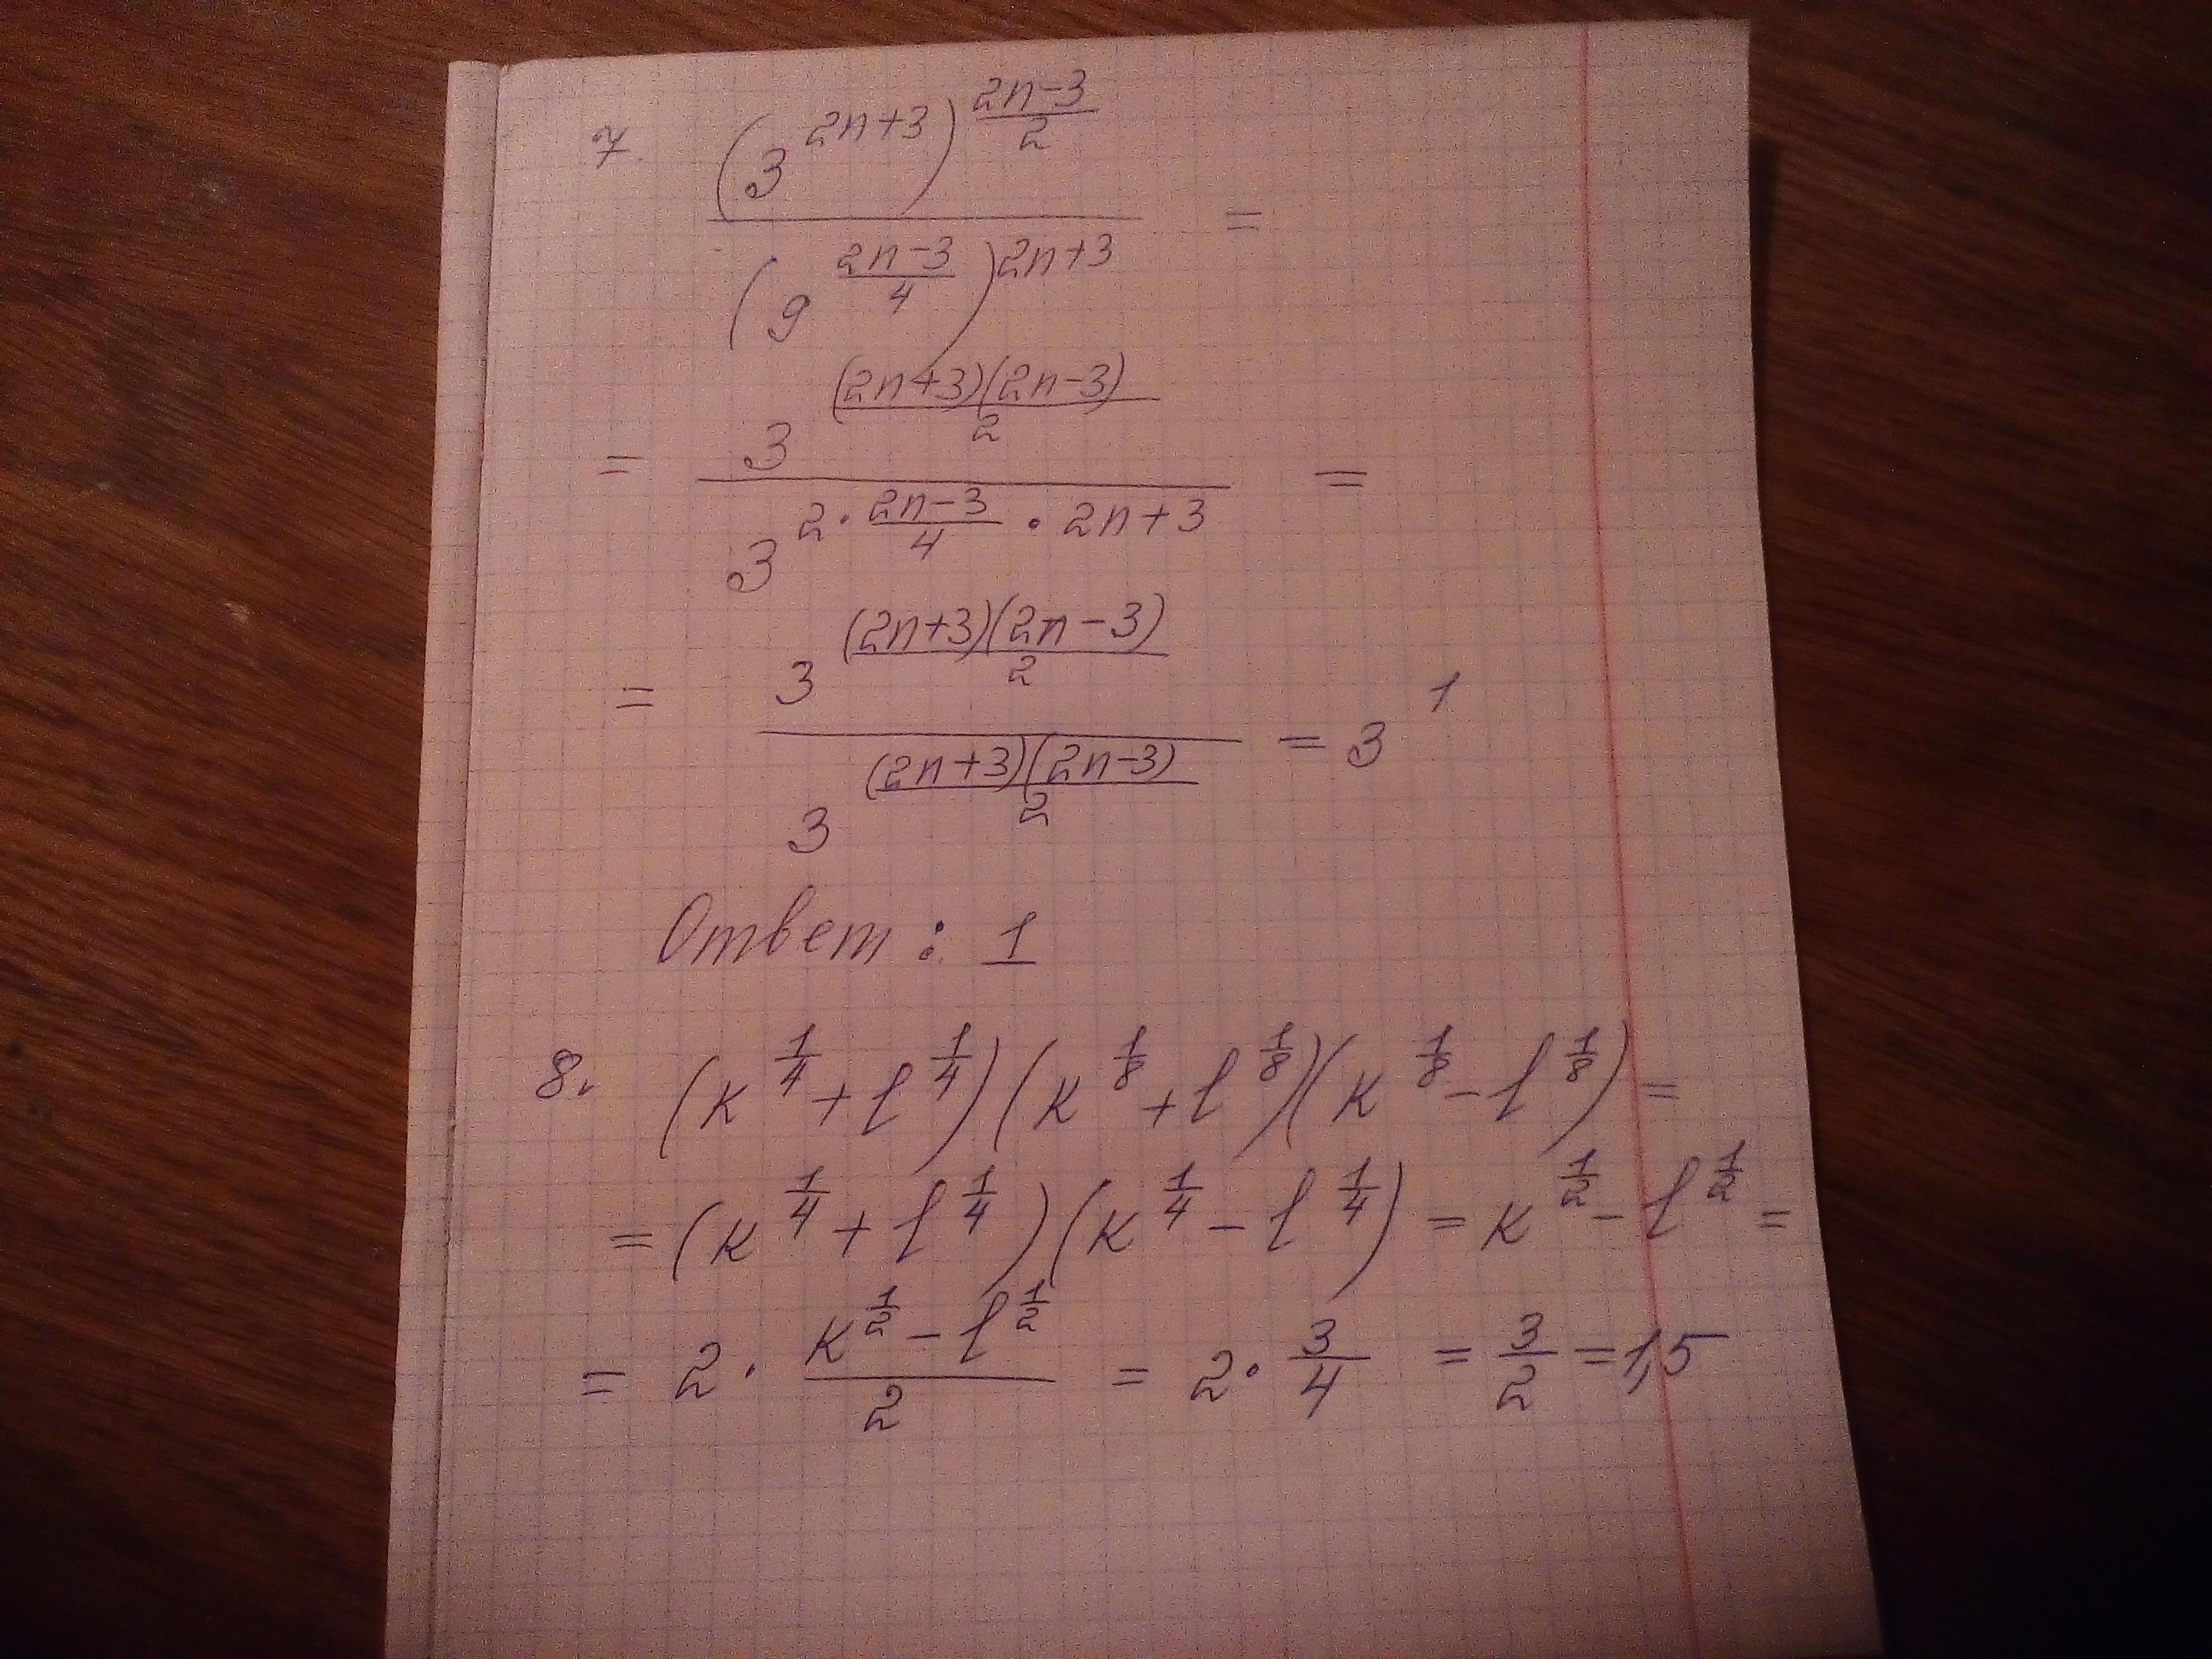 7. (3^(2n+3))^((2n-3)/2) / (9^((2n-3)/4))^(2n+3) =
= 3^((2n+3)(2n-3)/2) / 3^(2·(2n-3)/4 · 2n+3) =
= 3^((2n+3)(2n-3)/2) / 3^((2n+3)(2n-3)/2) = 3^1
Ответ: 1
8. (к^(1/4) + l^(1/4))(к^(1/8) + l^(1/8))(к^(1/8) - l^(1/8)) =
= (к^(1/4) + l^(1/4))(к^(1/4) - l^(1/4)) = к^(1/2) - l^(1/2) =
= 2 · (к^(1/2) - l^(1/2))/2 = 2 · 3/4 = 3/2 = 1,5